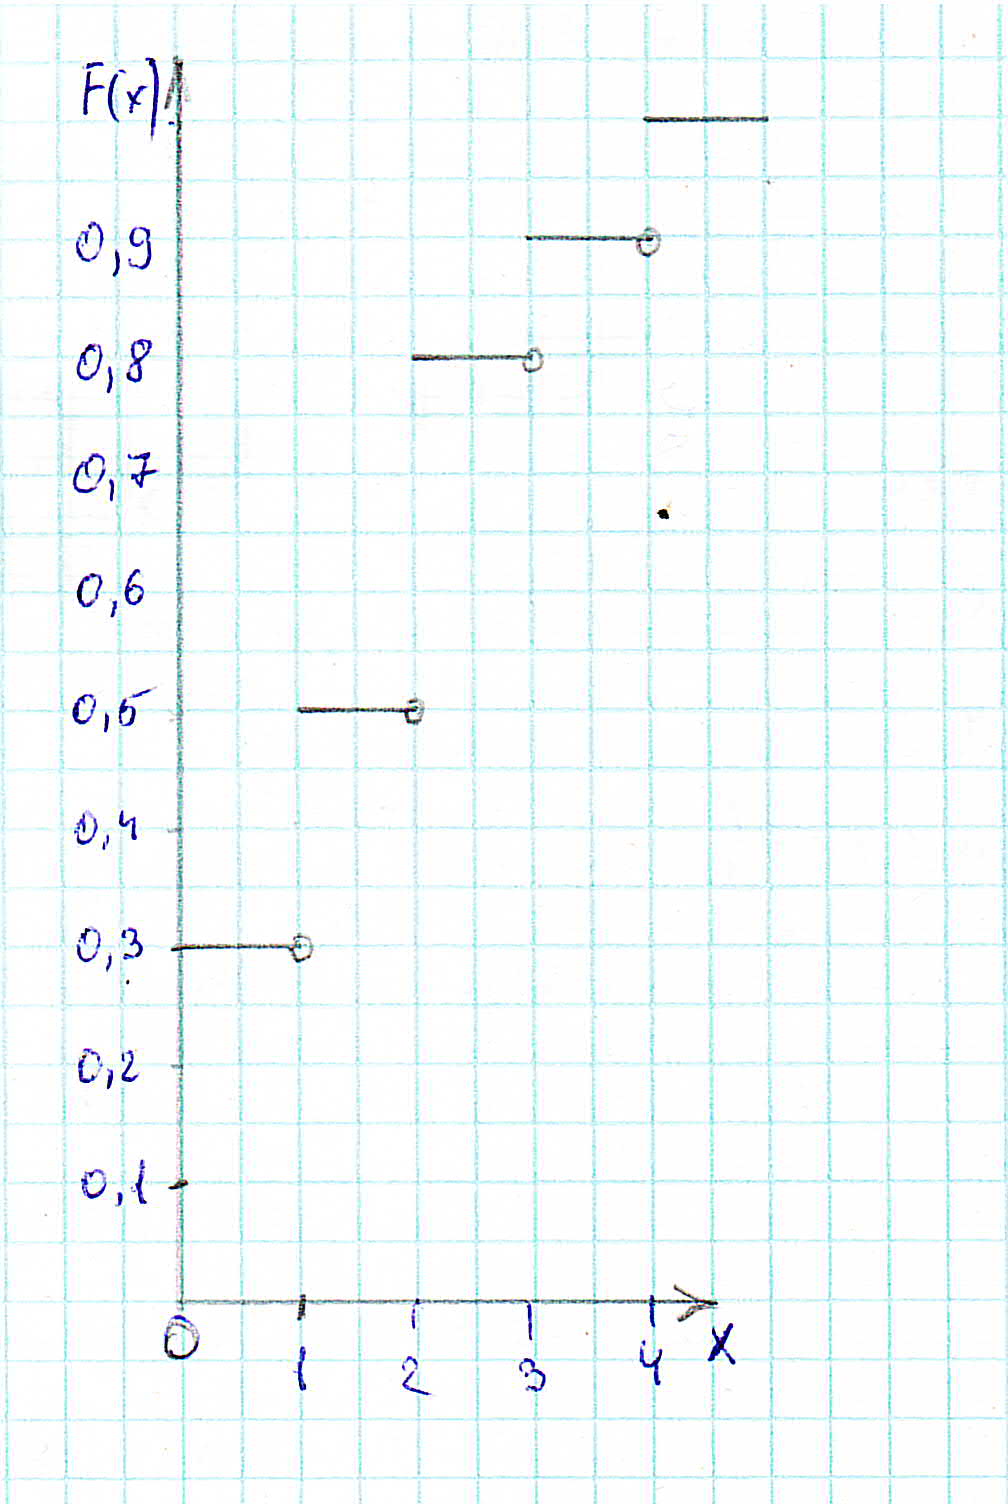 F(x)
0,9
0,8
0,7
0,6
0,5
0,4
0,3
0,2
0,1
0 1 2 3 4 x